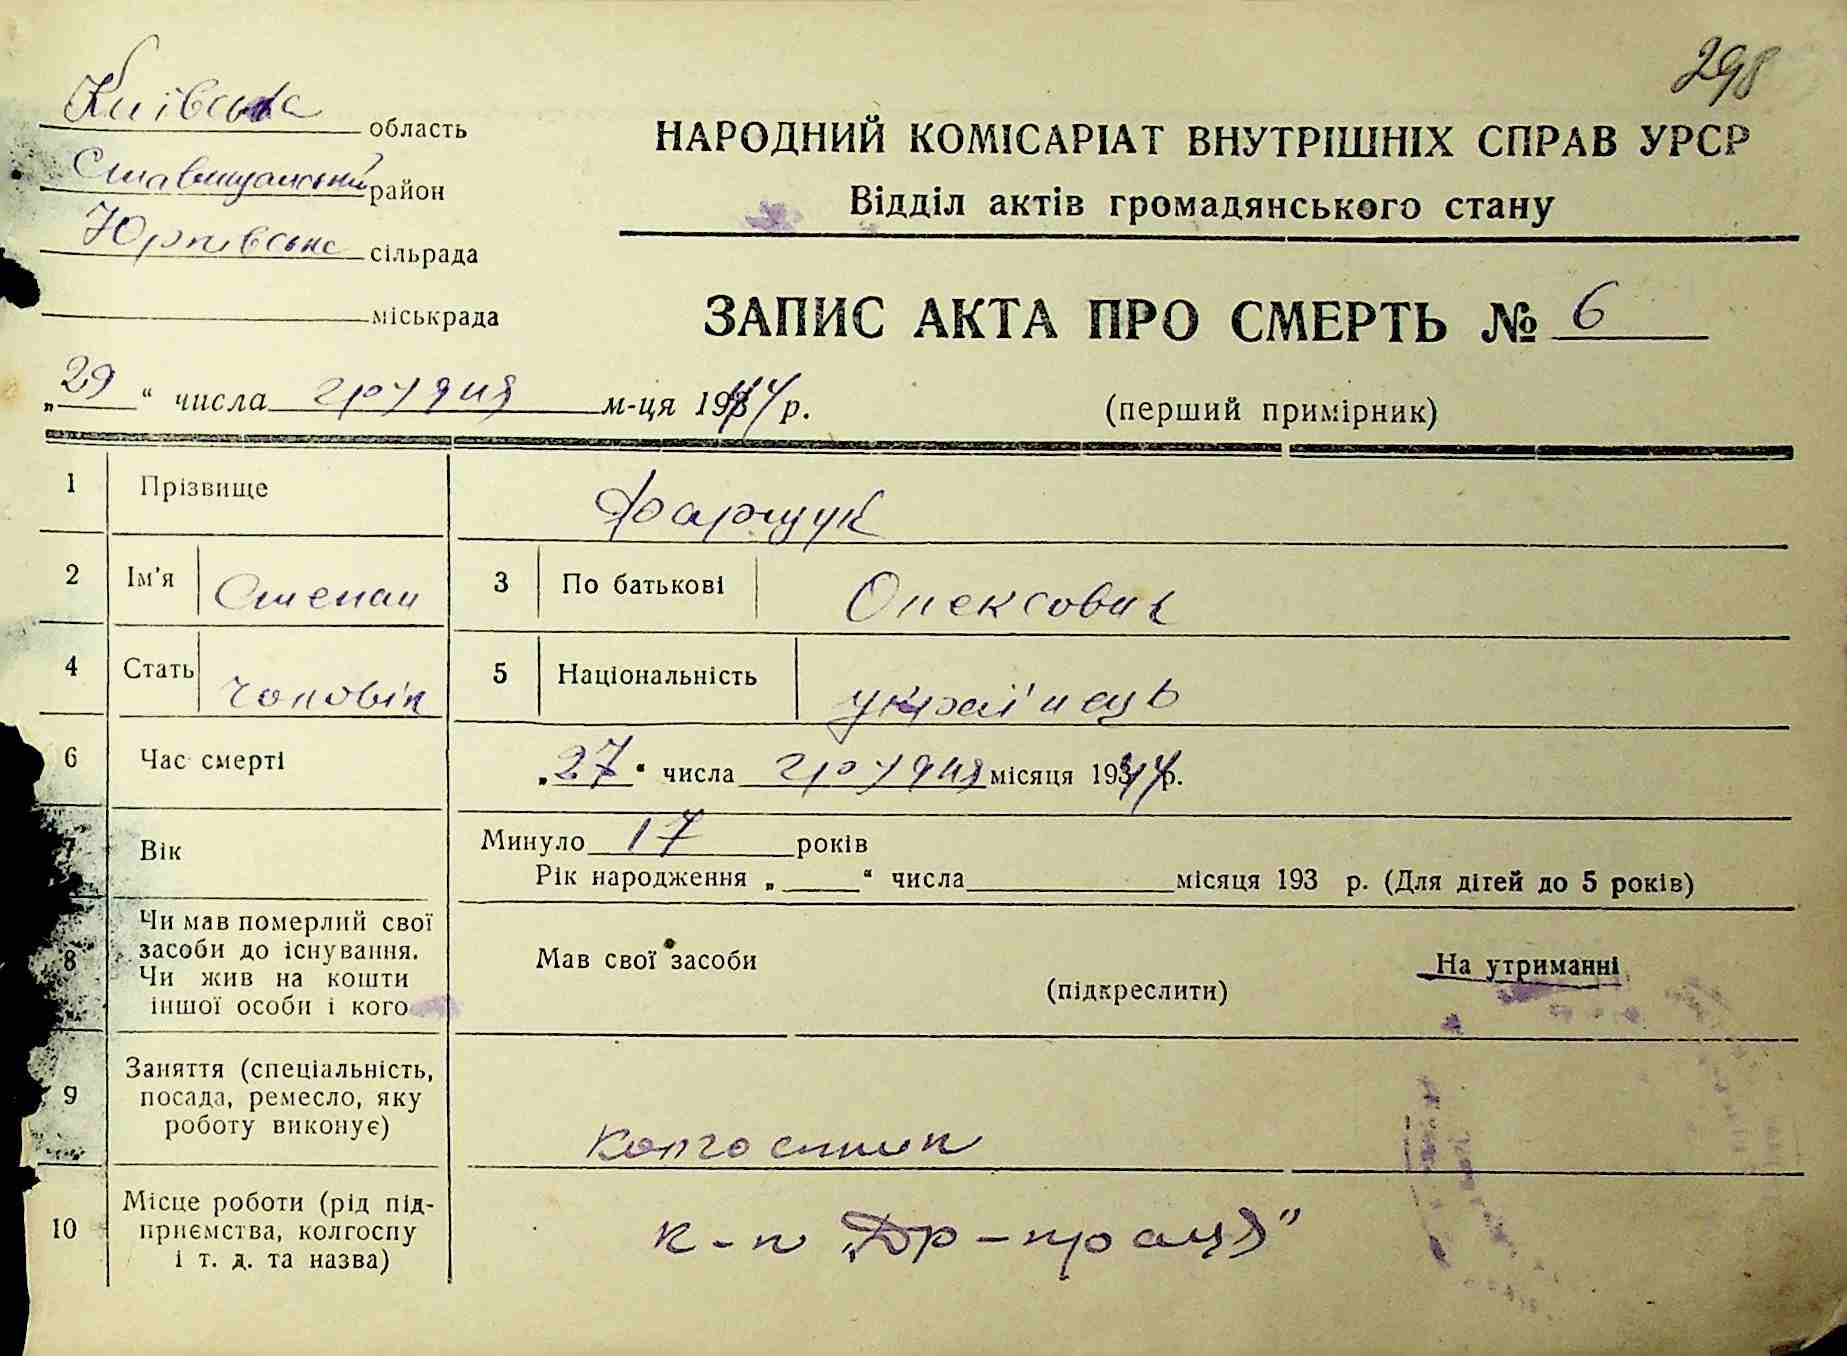 298
Київська область
Ставищанський район
Юрківська сільрада
міськрада
НАРОДНИЙ КОМІСАРІАТ ВНУТРІШНІХ СПРАВ УРСР
Відділ актів громадянського стану
ЗАПИС АКТА ПРО СМЕРТЬ № 6
„29“ числа грудня м-ця 1944 р.
(перший примірник)
1 Прізвище
2 Ім'я Степан 3 По батькові Олексович
4 Стать чоловік 5 Національність українець
6 Час смерті „27“ числа грудня місяця 1944 р.
7 Вік Минуло 17 років
Рік народження „ “ числа місяця 193 р. (Для дітей до 5 років)
8 Чи мав померлий свої засоби до існування. Чи жив на кошти іншої особи і кого
Мав свої засоби На утриманні
(підкреслити)
9 Заняття (спеціальність, посада, ремесло, яку роботу виконує) колгоспник
10 Місце роботи (рід підприємства, колгоспу і т. д. та назва) к-п „Др-праця”